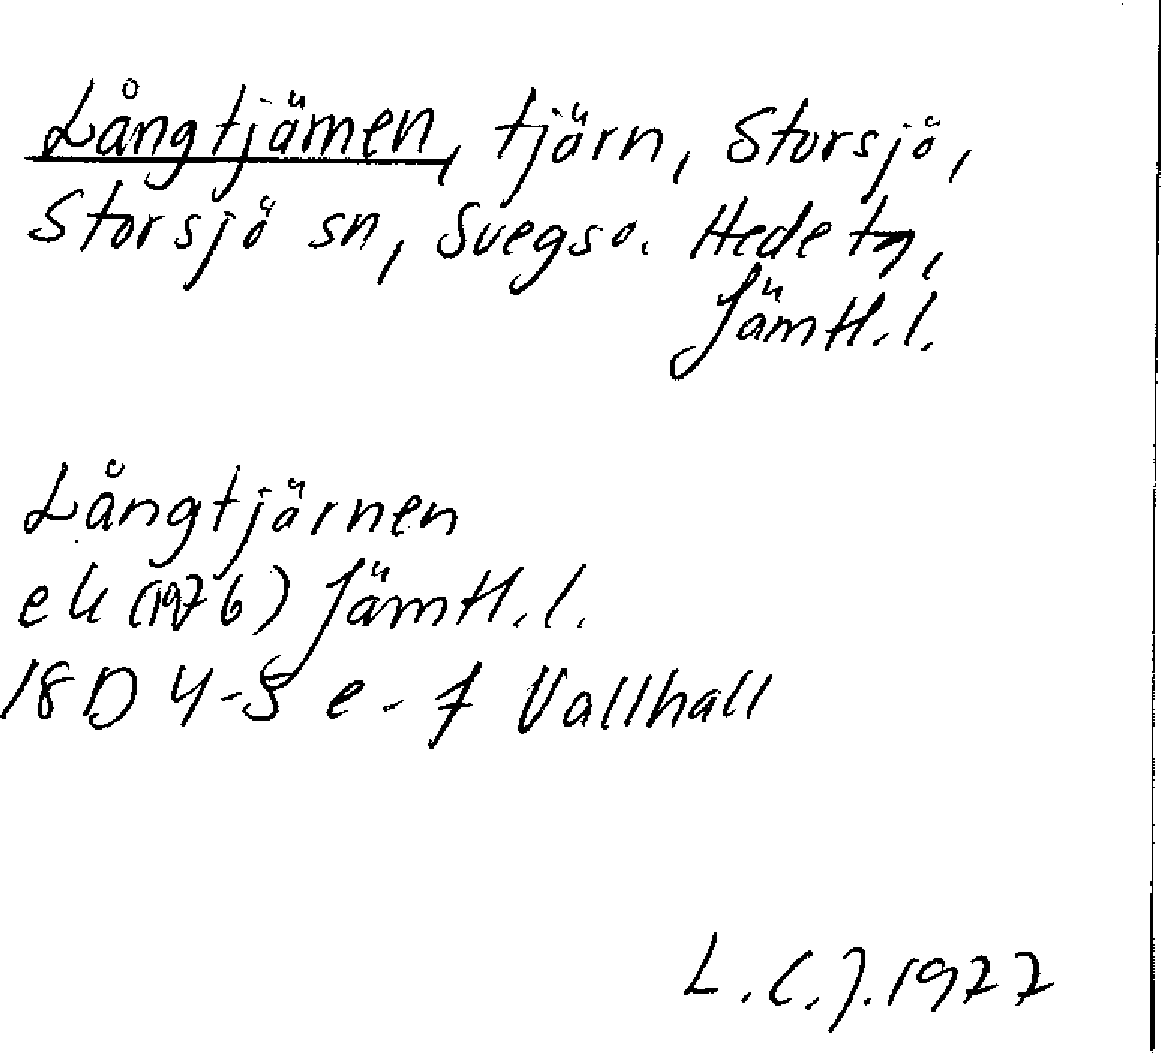 Långtjärnen, tjärn, Storsjö,
Storsjö sn, Svegs o. Hede tg,
Jämtl.l.
Långtjärnen
ek (1976) Jämtl.l.
18D 4-5 e-f Vallhall
L.C.J. 1977